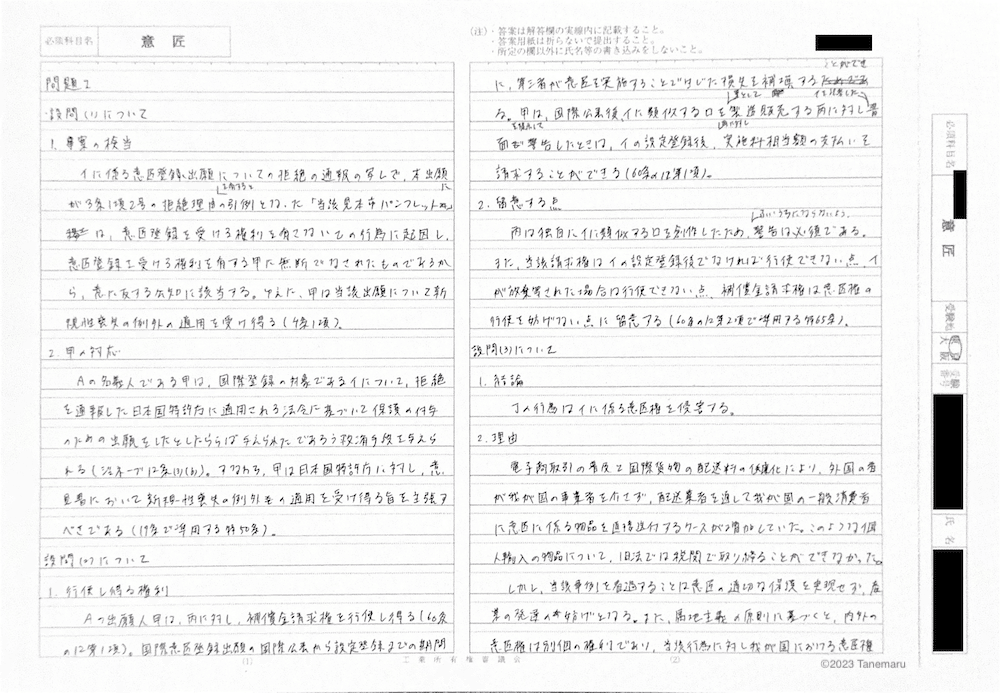 必須科目名 意匠
(注)・答案は解答欄の実線内に記載すること。
・答案用紙は折らないで提出すること。
・所定の欄以外に氏名等の書き込みをしないこと。
問題I
設問(1)について
1. 事案の検当
イに係る意匠登録出願についての拒絶の通報の写しで、本出願
が3条1項2号の拒絶理由の引例となった「当該見本市パンフレット
に
は、意匠登録を受ける権利を有
する
いての行為に起因し、
意匠登録を受ける権利を有する甲に無断でなされたものであるか
ら、意に反する公知に該当する。ゆえに、甲は当該出願について新
規性喪失の例外の適用を受け得る(4条1項)。
2. 甲の対応
Aの名義人である甲は、国際登録の対象であるイについて、拒絶
を通報した日本国特許庁に適用される法令に基づいて保護の付与
のための出願をしたとしたらば与えられたであろう救済手段を与えら
れる(ジュネーブ12条(3)(b))。すなわち、甲は日本国特許庁に対し、意
見書において新規性喪失の例外の適用を受け得る旨を主張す
べきである(19条で準用する特50条)。
設問(2)について
1. 行使し得る権利
Aの出願人甲は、丙に対し、補償金請求権を行使し得る(60条
の12第1項)。国際意匠登録出願の国際公表から設定登録までの期間
(1)
工業所有権審議会
に、第三者が意匠を実施することで生じた損失を補填する
ことができ
る。甲は、国際公表後、イに類似するロを
業として
製造販売する丙に対し
イを記載した
書
面
を提示して
警告したときは、
丙に対し
イの設定登録後、実施料相当額の支払いを
請求することができる(60条の12第1項)。
2. 留意する点
丙は独自にイに類似するロを創作したため、
警告は必須である。
また、当該請求権はイの設定登録後でなければ行使できない点、イ
が放棄等された場合は行使できない点、補償金請求権は意匠権の
行使を妨げない点に留意する(60条の12第2項で準用する特65条)。
設問(3)について
1. 結論
丁の行為はイに係る意匠権を侵害する。
2. 理由
電子商取引の普及と国際貨物の配送料の低廉化により、外国の者
が我が国の事業者を介さず、配送業者を通して我が国の一般消費者
に意匠に係る物品を直接送付するケースが増加していた。このような個
人輸入の物品について、旧法では税関で取り締ることができなかった。
しかし、当該事例を看過することは意匠の適切な保護を実現せず、産
業の発達の妨げとなる。また、属地主義の原則に基づくと、内外の
意匠権は別個の権利であり、当該行為に対し我が国における意匠権
(2)
必須科目名
意匠
受験地
東京
大阪
受験番号
氏名
©2023 Tanemaru